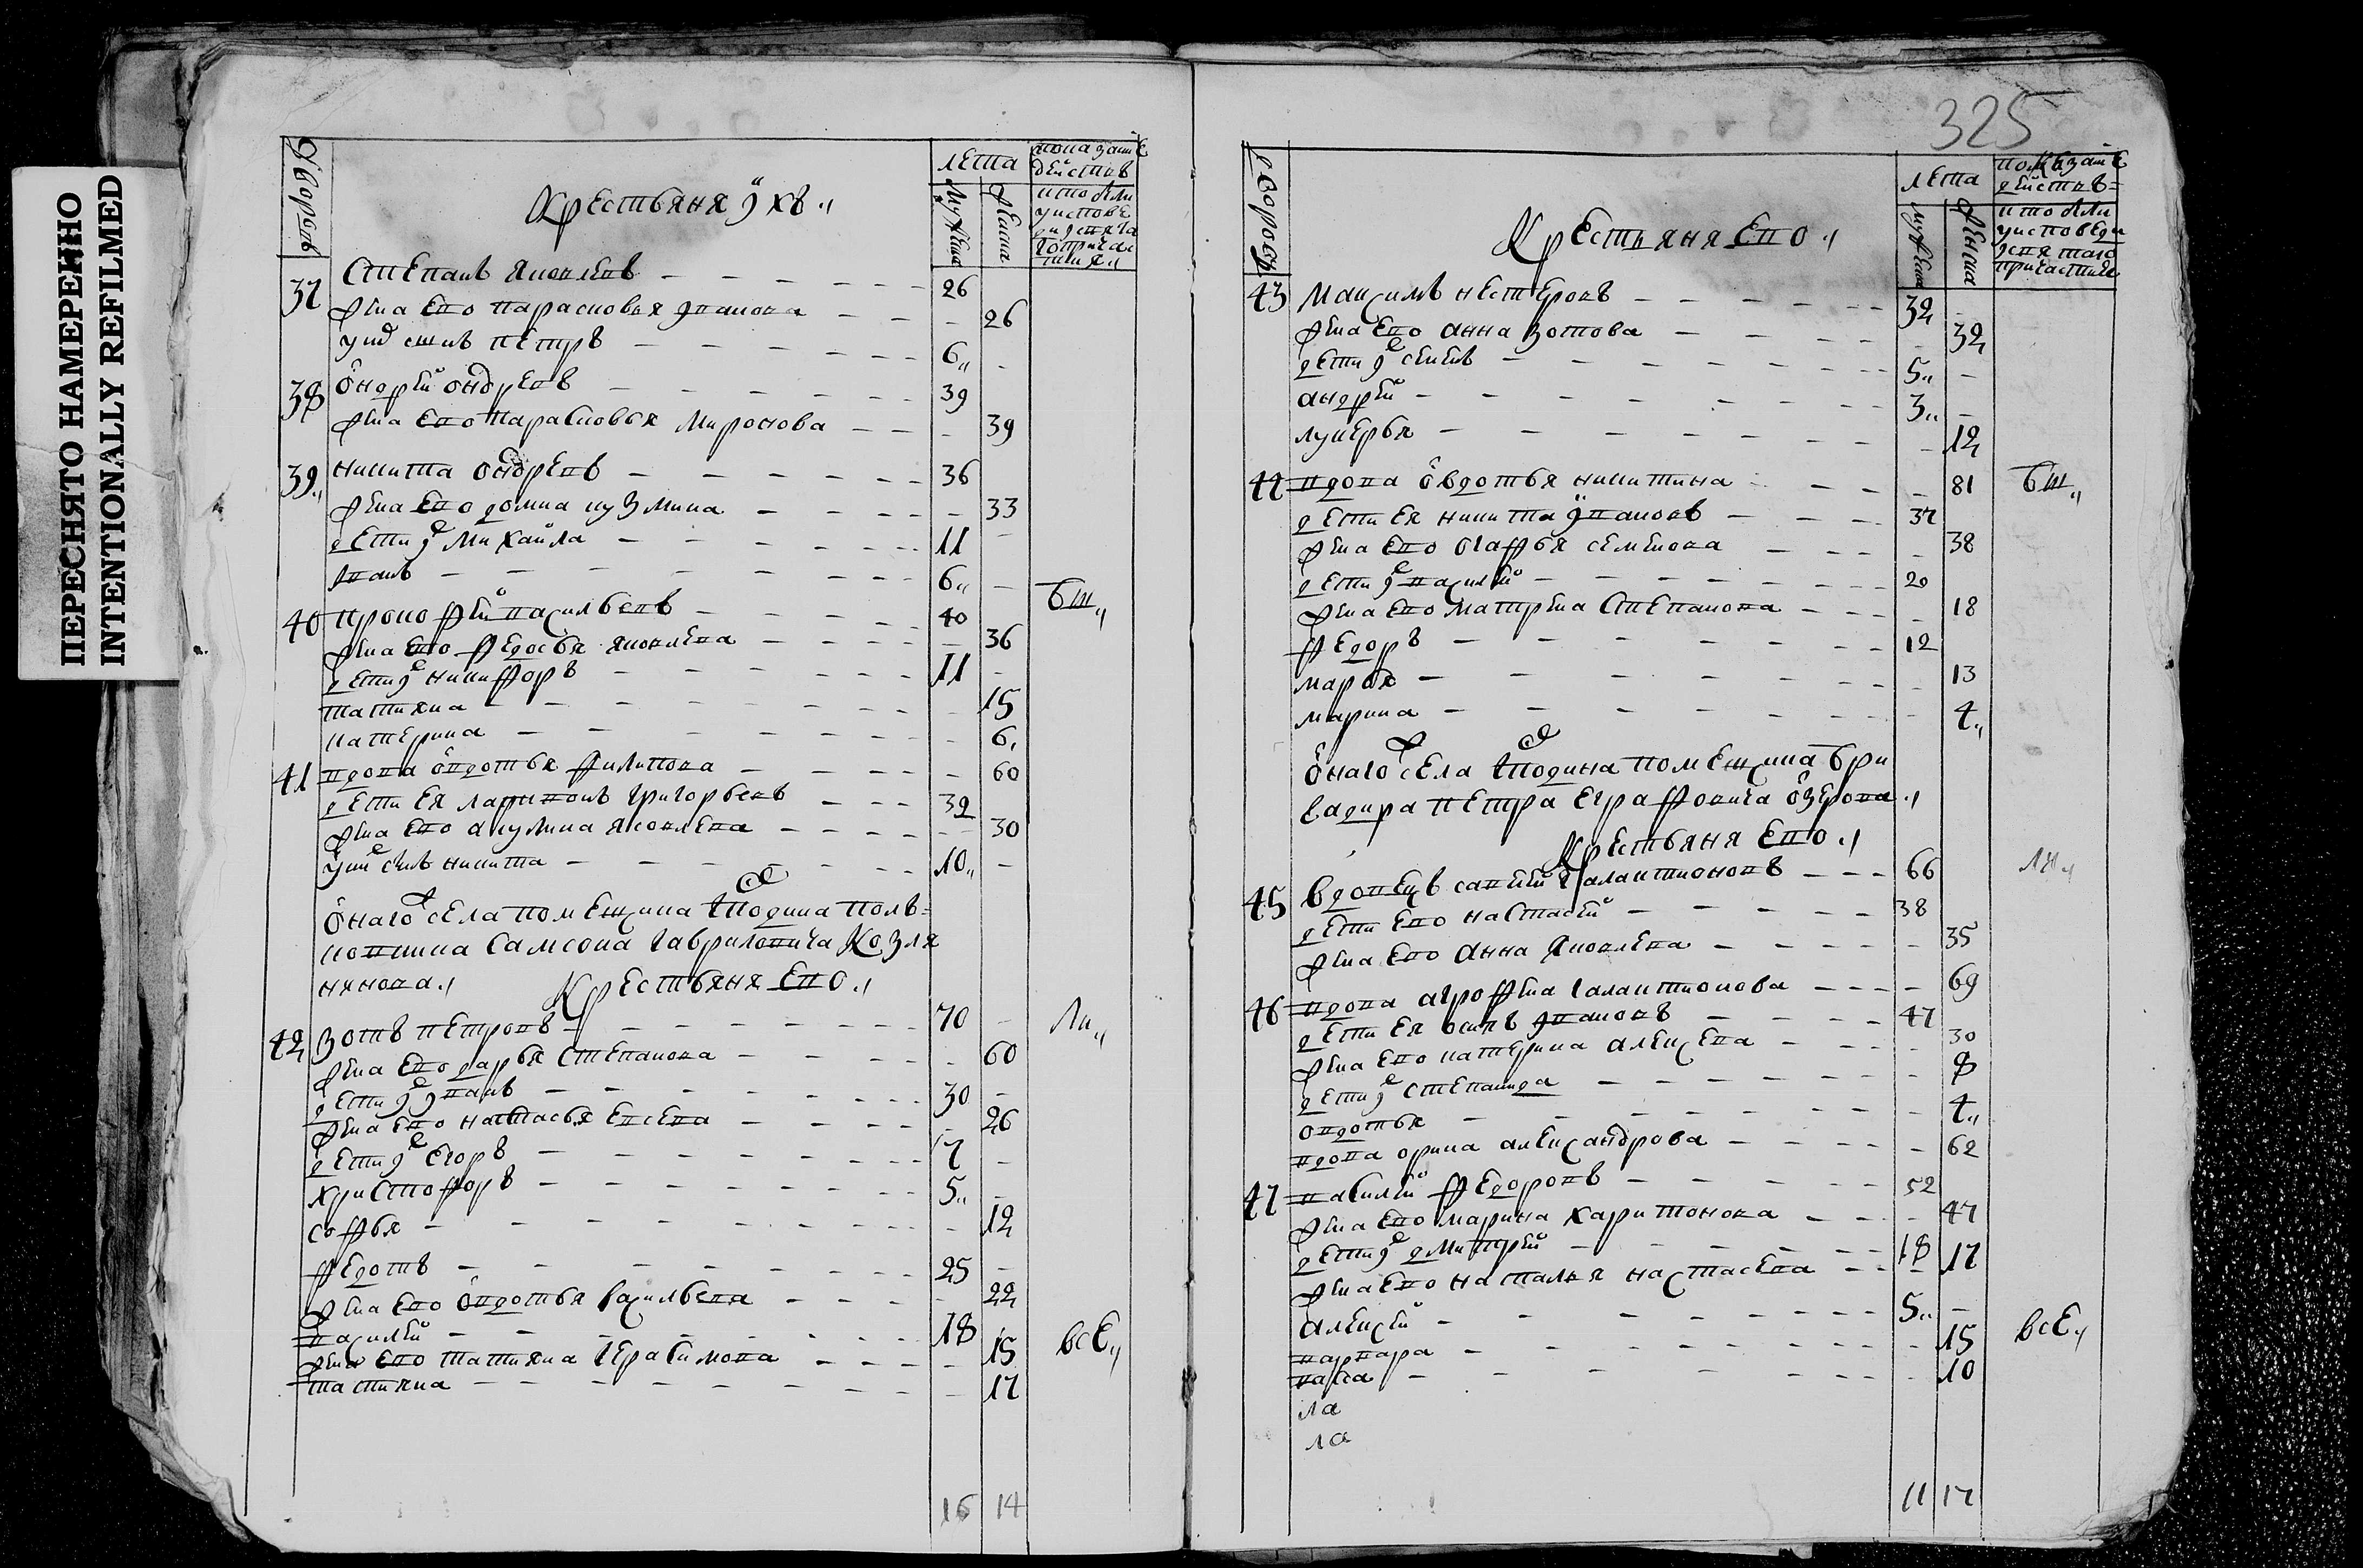 ПЕРЕСНЯТО НАМЕРЕННО
INTENTIONALLY REFILMED
дворовъ
Крестьяня ихъ
лета
мужеска
женска
показание
действъ
37 Степанъ Яковлевъ 26
жена ево Парасковья Иванова 26
у них сынъ Петръ 6
38 Ондрей Ондреевъ 39
жена ево Парасковья Миронова 39
39 Никита Ондреевъ 36
жена ево Домна Кузмина 33
дети их Михайла 11
Иванъ 6
40 Прокофей Васильевъ 40 бш
жена ево Федосья Яковлева 36
дети их Никифоръ 11
Татияна 15
Катерина 6
41 вдова Овдотья Филипова 60
дети ея Ларивонъ Григорьевъ 32
жена ево Акулина Яковлева 30
у них сынъ Никита 10
Онаго села помещика Шодина полъ=
ковника Самсона Гавриловича Козля
нинова
Крестьяня ево
42 Зотъ Петровъ 70 ли
жена ево Дарья Степанова 60
дети их Иванъ 30
жена ево Настасья Евсева 26
дети их Егоръ 7
Христофоръ 5
Софья 12
Федотъ 25
жена ево Овдотья Васильева 22
Василей 18
жена ево Татияна Герасимова 15 все
Татияна 17
16 14
325
дворовъ
Крестьяня ево
лета
мужеска
женска
показание
действъ=
43 Максимъ Нестеровъ 32
жена ево Анна Зотова 32
дети их Семенъ 5
Андрей 3
Лукерья 12
44 вдова Овдотья Никитина 81 бш
дети ея Никита Ивановъ 37
жена ево Агафья Семенова 38
дети их Василей 20
жена ево Матрена Степанова 18
Федоръ 12
Марья 13
Марина 4
Онаго села Шодина помещика бри
гадира Петра Еграфовича Озерова
Крестьяня ево
45 вдовецъ Савелей Галактионовъ 66 ли
дети ево Настасей 38
жена ево Анна Яковлева 35
46 вдова Агрофена Галактионова 69
дети ея Осипъ Ивановъ 47
жена ево Катерина Алексева 30
дети их Степанида 8
Овдотья 4
вдова Орина Александрова 62
47 Василей Федоровъ 52
жена ево Марина Харитонова 47
дети их Дмитрей 18
жена ево Наталья Настасева 17
Алексей 5
Варвара 15 все
10
ла
ла
11 17